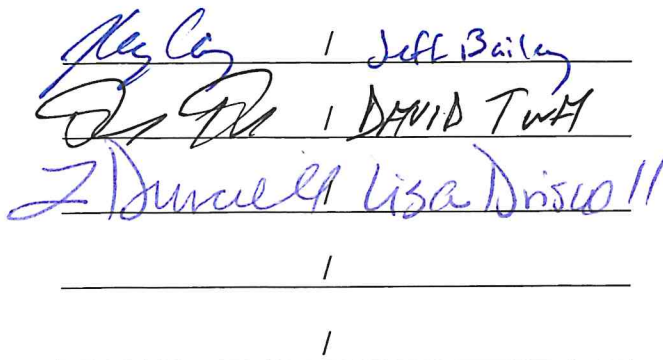 / Jeff Bailey
/ DAVID TWA
L Driscoll / Lisa Driscoll
/
/